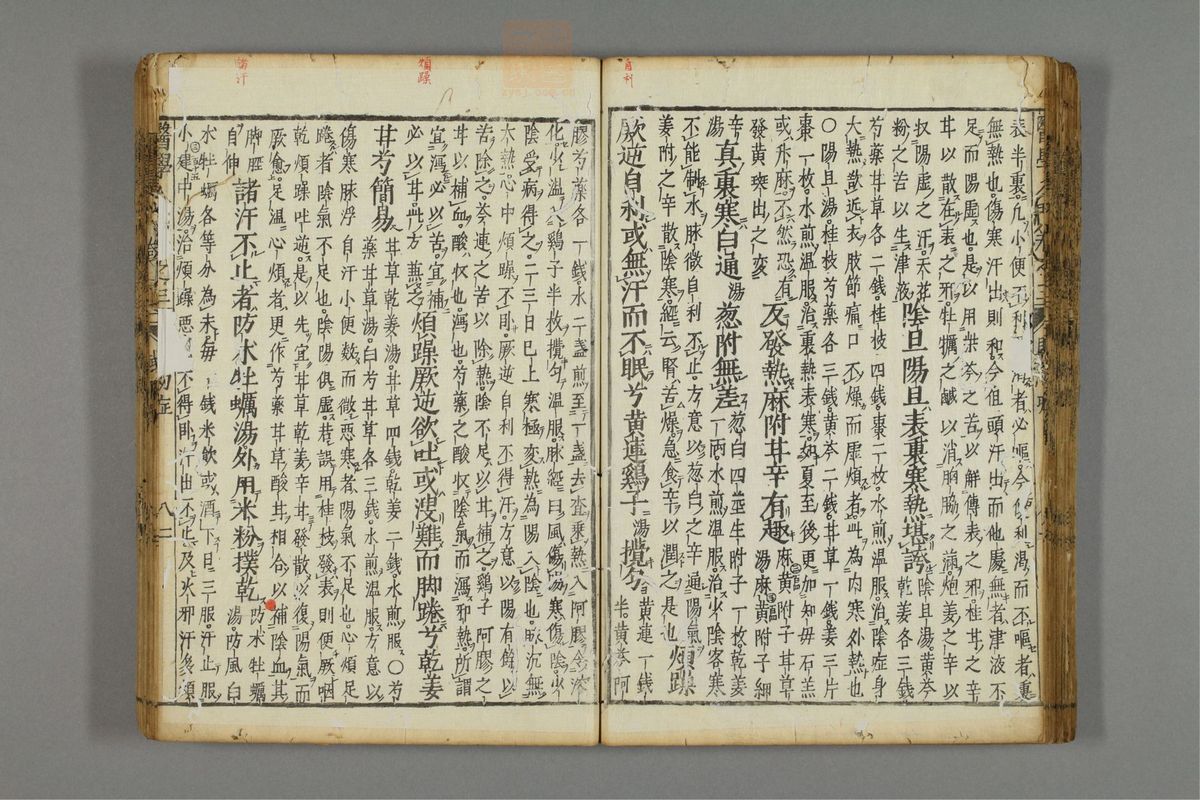 自利
表半裏。凡小便不利 者必嘔。今 利渴而不嘔者裏
無熱也。傷寒汗出則和。今但頭汗出而他處無者津液不
足而陽虛也。是以用柴芩之苦以解傳表之邪。桂甘之辛
甘以散在表之邪。牡蠣之鹹以消胸脇之滿。炮姜之辛以
収陽虛之汗。天花粉之苦以生津液 陰旦陽旦表裏寒熱堪誇 陰旦湯。黃芩乾姜各三錢
芍藥甘草各二錢。桂枝四錢。棗二枚。水煎溫服。治陰症身
大熱。欲近衣。肢節痛。口不燥而虛煩者。此為內寒外熱也
〇陽旦湯。桂枝芍藥各三錢。黃芩二錢。甘草一錢。姜三片
棗一枚。水煎溫服。治裏熱表寒。如夏至後更加知母石羔
或升麻。不然恐有發黃斑出之變 反發熱麻附甘辛有趣 麻黃附子甘草湯麻黃附子細
辛湯 真裏寒白通湯葱附無差 葱白四莖生附子一枚。乾姜一兩。水煎溫服。治少陰客寒
不能制水。脉微自利不止。方意以葱白之辛通陽氣。
姜附之辛散陰寒。經云。腎苦燥急食辛以潤之是也 煩躁
厥逆自利或無汗而不眠兮黃連鷄子湯攪勻 黃連一錢半。黃芩阿
煩躁
諸汗
膠芍藥各一錢。水二盞煎至一盞去查。乘熱入阿膠 溶
化。少溫入鷄子半枚。攪勻溫服。脉經曰。風傷陽寒傷陰。少
陰受病。得之二三日已上。寒極變熱。為陽入陰也。脉沉無
大熱。心中煩躁不卧。厥逆自利不得汗。方意以陽有餘以
苦除之。芩連之苦以除熱。陰不足以甘補之。鷄子阿膠之
甘以補血。酸収也。瀉也。芍藥之酸収陰氣而瀉邪熱。所謂
宜瀉必以苦。宜補必以甘。此方兼之 煩躁厥逆欲吐或溲難而脚踡兮乾姜
甘芍簡易 甘草乾姜湯。甘草四錢。乾姜二錢。水煎服。〇芍藥甘草湯。白芍甘草各三錢。水煎溫服。方意以
傷寒脉浮自汗小便數而微惡寒者。陽氣不足也。心煩足
踡者。陰氣不足也。陰陽俱虛。若誤用桂枝發表則便厥。咽
乾煩躁吐逆。是以先宜甘草乾姜辛甘發散以復陽氣。而
厥愈足溫。心煩者更作芍藥甘草酸甘相合。以補陰血。其
脚脛自伸 諸汗不止者防水牡蠣湯外用米粉撲乾 防水牡蠣湯。防風白
水牡蠣各等分為末。每一錢。米飲或酒下。日三服。汗止服
小建中湯。治煩躁惡 不得卧汗出不止及火邪汗多須